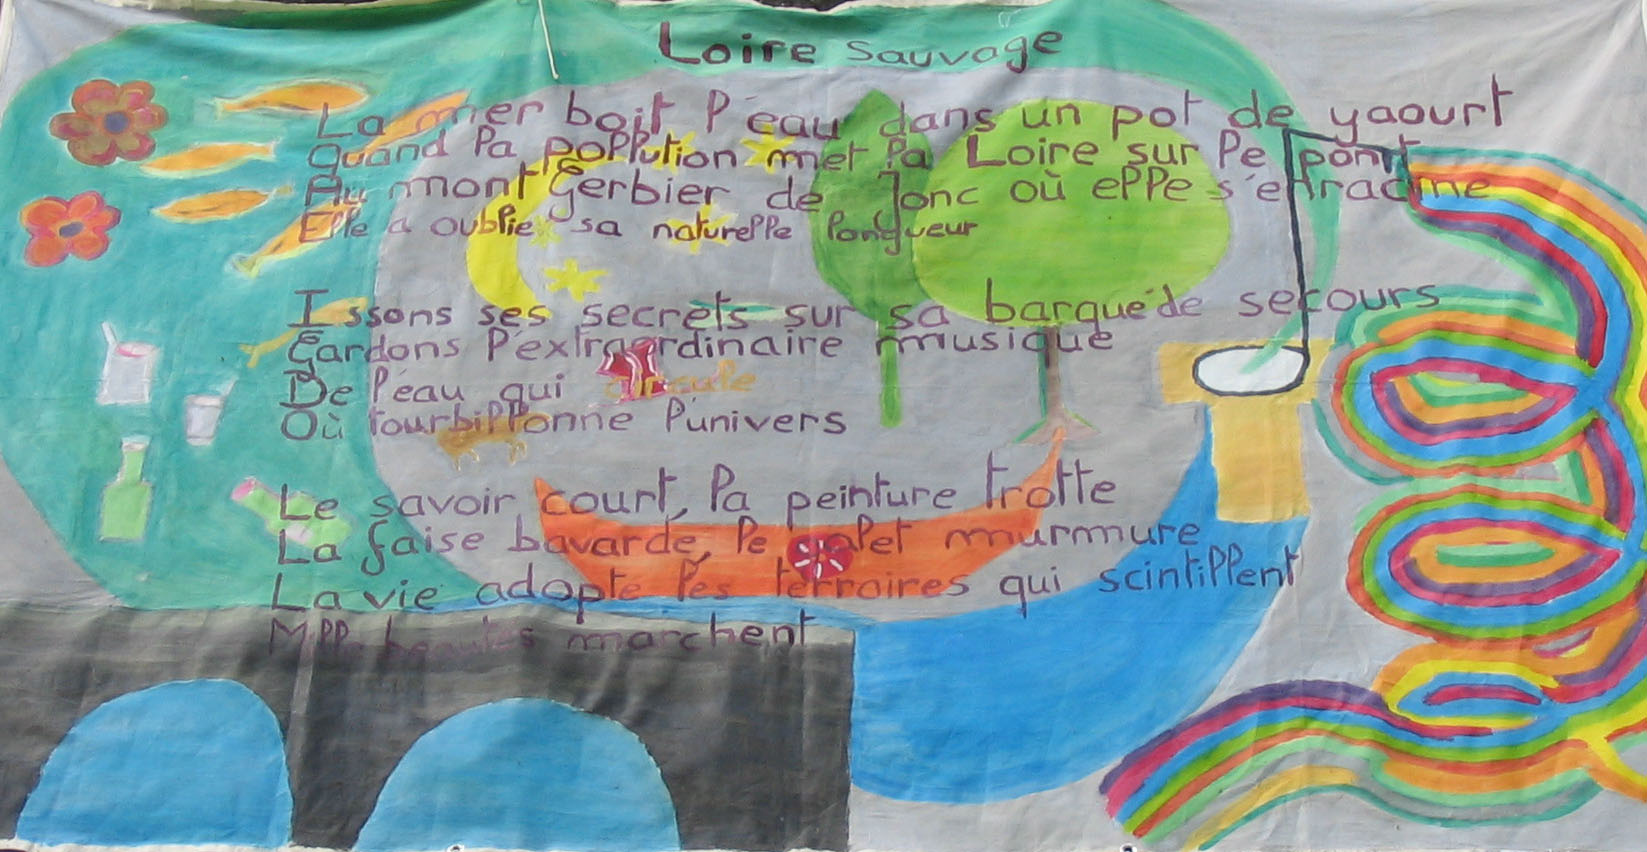 Loire Sauvage
La mer boit l'eau dans un pot de yaourt
Quand la pollution met la Loire sur le pont
Au mont Gerbier de Jonc où elle s'enracine
Elle a oublié sa naturelle longueur
Issons ses secrets sur sa barque de secours
Gardons l'extraordinaire musique
De l'eau qui circule
Où tourbillonne l'univers
Le savoir court, la peinture trotte
La faise bavarde, le galet murmure
La vie adopte les terraires qui scintillent
Mille beautés marchent